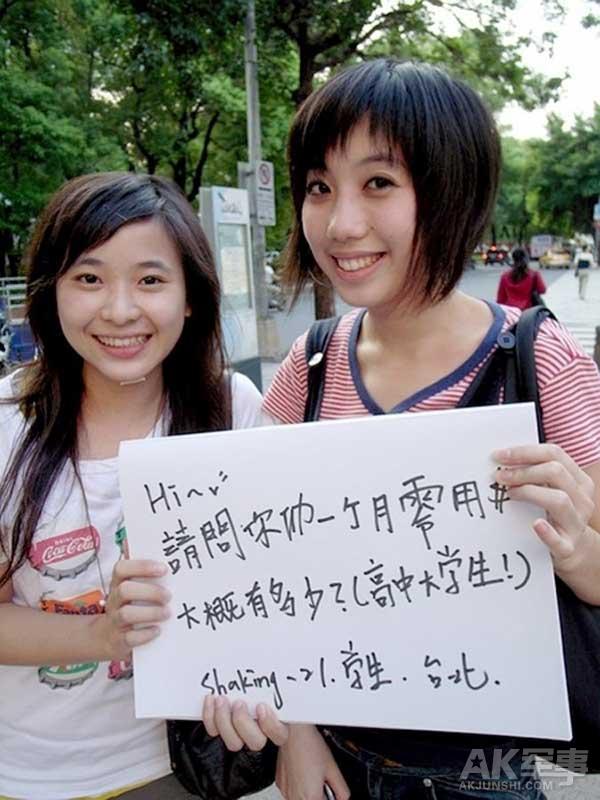 Hi~
請問你们一个月零用#
大概有多少?(高中大学生!)
shaking、21.学生.台北.
DRINK
Coca-Cola
Fanta
AK军事
AKJUNSHI.COM